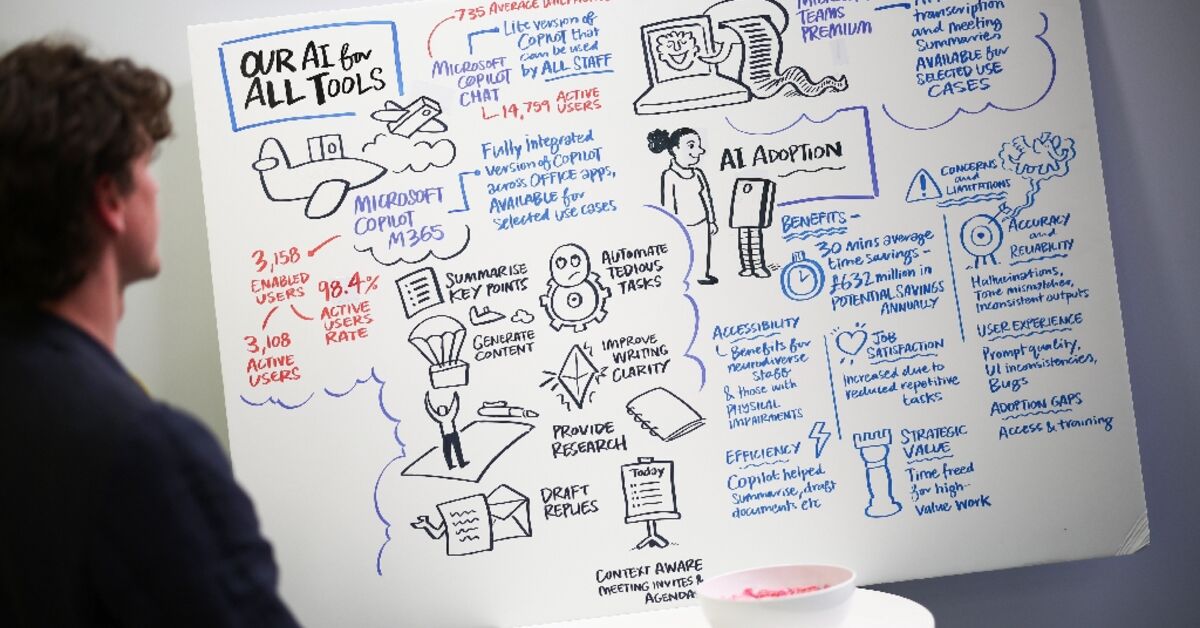 OUR AI for
ALL TOOLS
735 AVERAGE
MICROSOFT
COPILOT
CHAT
Lite version of
COPILOT that
can be used
by ALL STAFF
14,759 ACTIVE
USERS
MICROSOFT
COPILOT
M365
Fully integrated
version of COPILOT
across OFFICE apps,
AVAILABLE for
selected use cases
3,158
ENABLED
USERS
98.4%
ACTIVE
USERS
RATE
3,108
ACTIVE
USERS
SUMMARISE
KEY POINTS
AUTOMATE
TEDIOUS
TASKS
GENERATE
CONTENT
IMPROVE
WRITING
CLARITY
PROVIDE
RESEARCH
DRAFT
REPLIES
Today
CONTEXT AWARE
MEETING INVITES &
AGENDA
TEAMS
PREMIUM
transcription
and meeting
summaries
AVAILABLE for
SELECTED USE
CASES
AI ADOPTION
BENEFITS -
30 mins average
time savings -
£632 million in
POTENTIAL SAVINGS
ANNUALLY
ACCESSIBILITY
Benefits for
neurodiverse
staff
& those with
PHYSICAL
IMPAIRMENTS
JOB
SATISFACTION
Increased due to
reduced repetitive
tasks
EFFICIENCY
Copilot helped
summarise, draft
documents etc
STRATEGIC
VALUE
Time freed
for high-
value work
CONCERNS
and
LIMITATIONS
ACCURACY
and
RELIABILITY
Hallucinations,
Tone mismatches,
inconsistent outputs
USER EXPERIENCE
Prompt quality,
UI inconsistencies,
Bugs
ADOPTION GAPS
Access & training